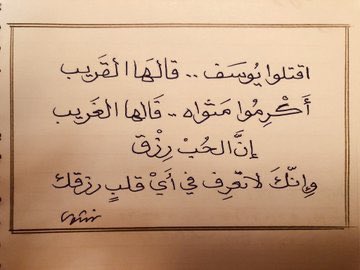 اقتلوا يُوسَف .. قالهَا القَريب
أَكْرِمُوا مَثواه .. قَالها الغَريب
إنَّ الحُبْ رِزْق
وإنّكَ لا تَعْرِف في أيْ قلبٍ رزقك